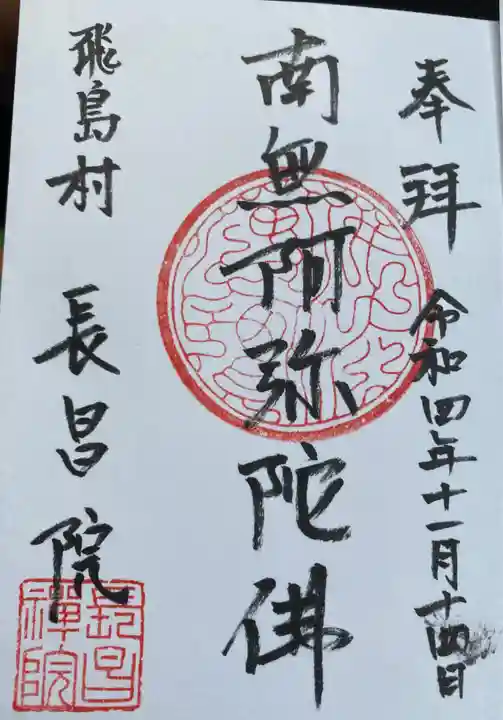 奉拝
令和四年十一月十四日
南無阿弥陀佛
飛島村
長昌院
長昌禅院